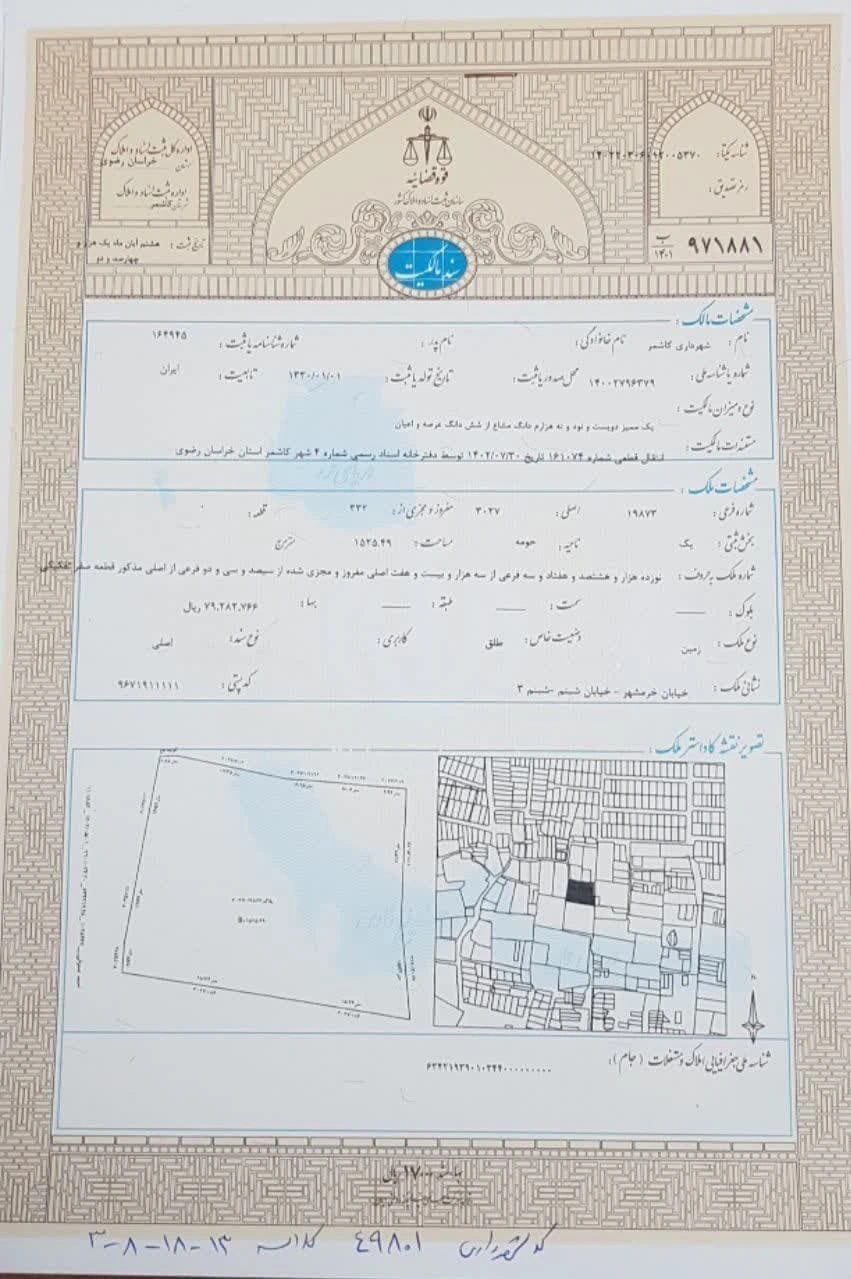 قوه قضائیه
سازمان ثبت اسناد و املاک کشور
سند مالکیت
شناسه یکتا: ۱۴۰۲۲۰۳۰۶۰۱۲۰۰۵۳۷۰
رمز تصدیق:
۹۷۱۸۸۱ ب ۱۴۰۱
اداره کل ثبت اسناد و املاک
استان خراسان رضوی
اداره ثبت اسناد و املاک
شهرستان کاشمر
تاریخ ثبت: هشتم آبان ماه یک هزار و
چهارصد و دو
مشخصات مالک:
نام: شهرداری کاشمر نام خانوادگی: نام پدر: شماره شناسنامه یا ثبت: ۱۶۴۹۴۵
شماره یا شناسه ملی: ۱۴۰۰۲۷۹۶۳۷۹ محل صدور یا ثبت: تاریخ تولد یا ثبت: ۱۳۳۰/۰۱/۰۱ تابعیت: ایران
نوع و میزان مالکیت:
یک ممیز دویست و نود و نه هزارم دانگ مشاع از شش دانگ عرصه و اعیان
مستندات مالکیت: انتقال قطعی شماره ۱۶۱۰۷۴ تاریخ ۱۴۰۲/۰۷/۳۰ توسط دفترخانه اسناد رسمی شماره ۴ شهر کاشمر استان خراسان رضوی
مشخصات ملک:
شماره فرعی: ۱۹۸۷۳ اصلی: ۳۰۲۷ مفروز و مجزی از: ۳۳۲ قطعه: ۰
بخش ثبتی: یک ناحیه: حومه مساحت: ۱۵۲۵.۴۹ مترمربع
شماره ملک به حروف: نوزده هزار و هشتصد و هفتاد و سه فرعی از سه هزار و بیست و هفت اصلی مفروز و مجزی شده از سیصد و سی و دو فرعی از اصلی مذکور قطعه صفر تفکیکی
بلوک: —— سمت: —— طبقه: —— بها: ۷۹.۲۸۲.۷۶۶ ریال
نوع ملک: زمین وضعیت خاص: طلق کاربری: نوع سند: اصلی
نشانی ملک: خیابان خرمشهر - خیابان شبنم -شبنم ۳ کد پستی: ۹۶۷۱۹۱۱۱۱۱
تصویر نقشه کاداستر ملک:
شناسه ملی جغرافیایی املاک و مستغلات (جام): ۶۳۴۲۱۹۳۹۰۱۰۳۴۴۰۰۰۰۰۰۰۰۰
بها سند ۱۷۰۰۰ ریال
کد شهرداری ۴۹۸۰۱ کلاسه ۳-۸-۱۸-۱۳